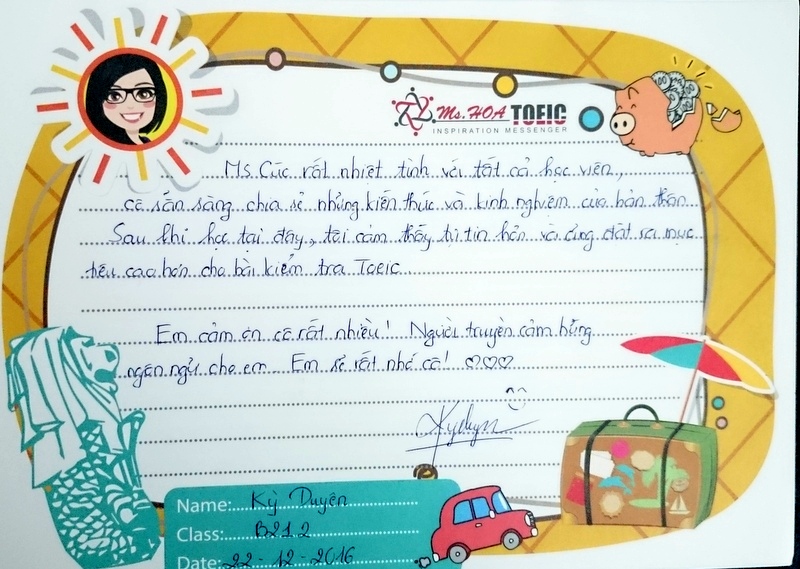 Ms. HOA TOEIC
INSPIRATION MESSENGER
Ms Cúc rất nhiệt tình với tất cả học viên,
cô sẵn sàng chia sẻ những kiến thức và kinh nghiệm của bản thân
Sau khi học tại đây, tôi cảm thấy tự tin hơn và cũng đặt ra mục
tiêu cao hơn cho bài kiểm tra Toeic.
Em cảm ơn cô rất nhiều! Người truyền cảm hứng
ngôn ngữ cho em. Em sẽ rất nhớ cô! ♡♡♡
Name: Kỳ Duyên
Class: B212
Date: 22-12-2016